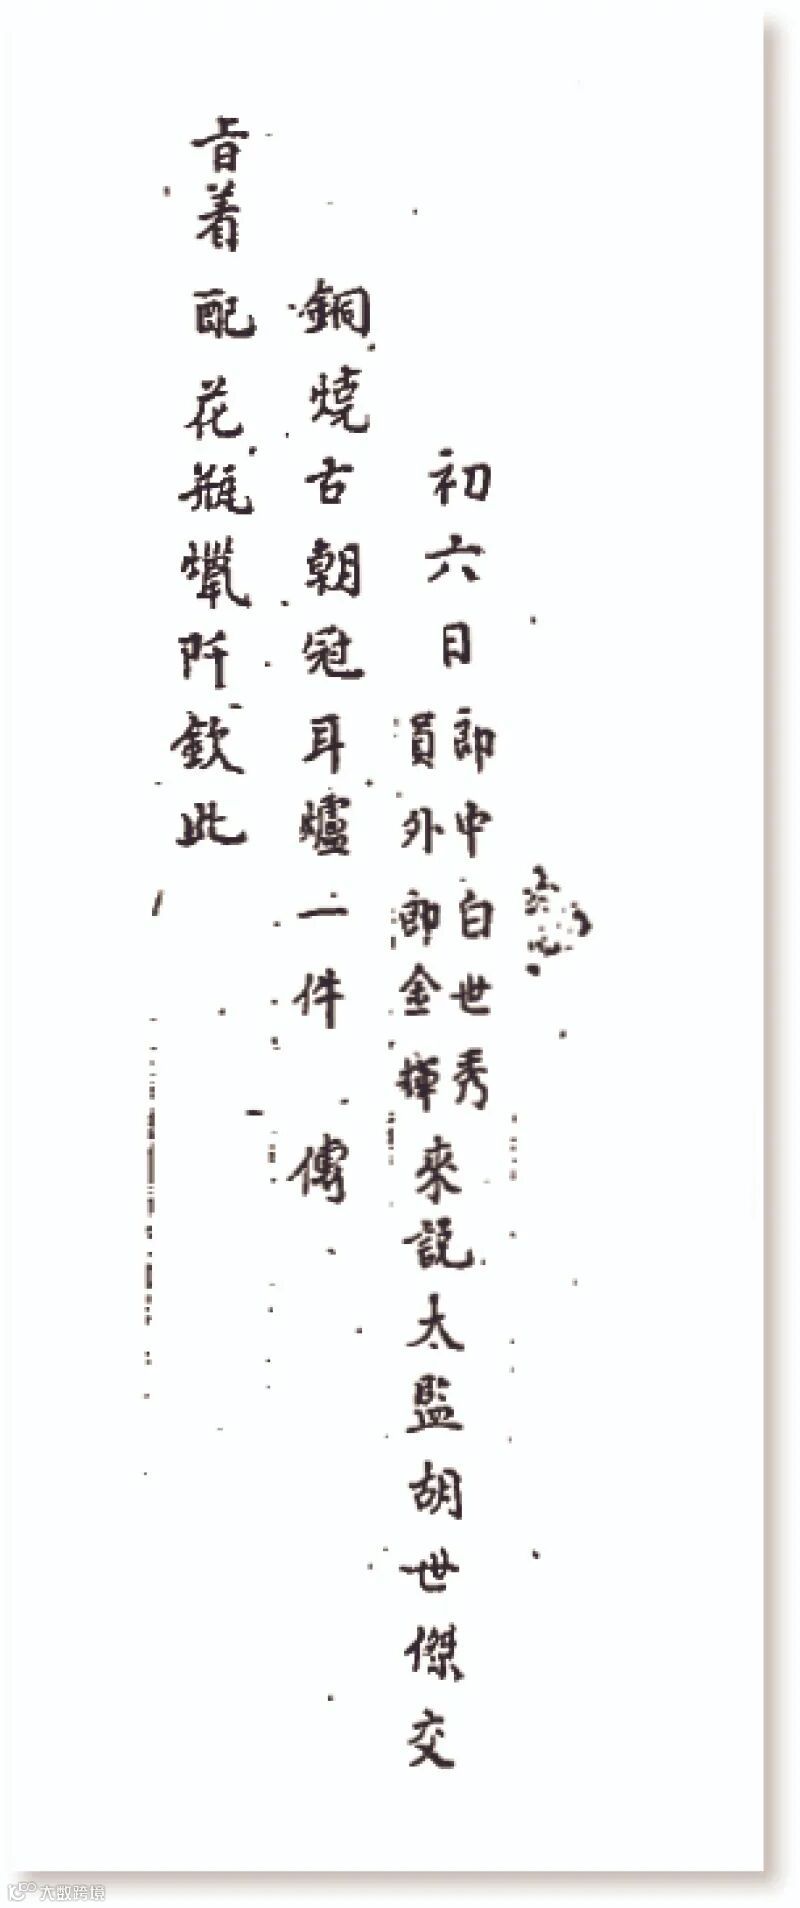 初六日郎中白世秀員外郎金輝來說太監胡世傑交
銅燒古朝冠耳爐一件 傳
旨着配花瓶蠟阡欽此
大数跨境